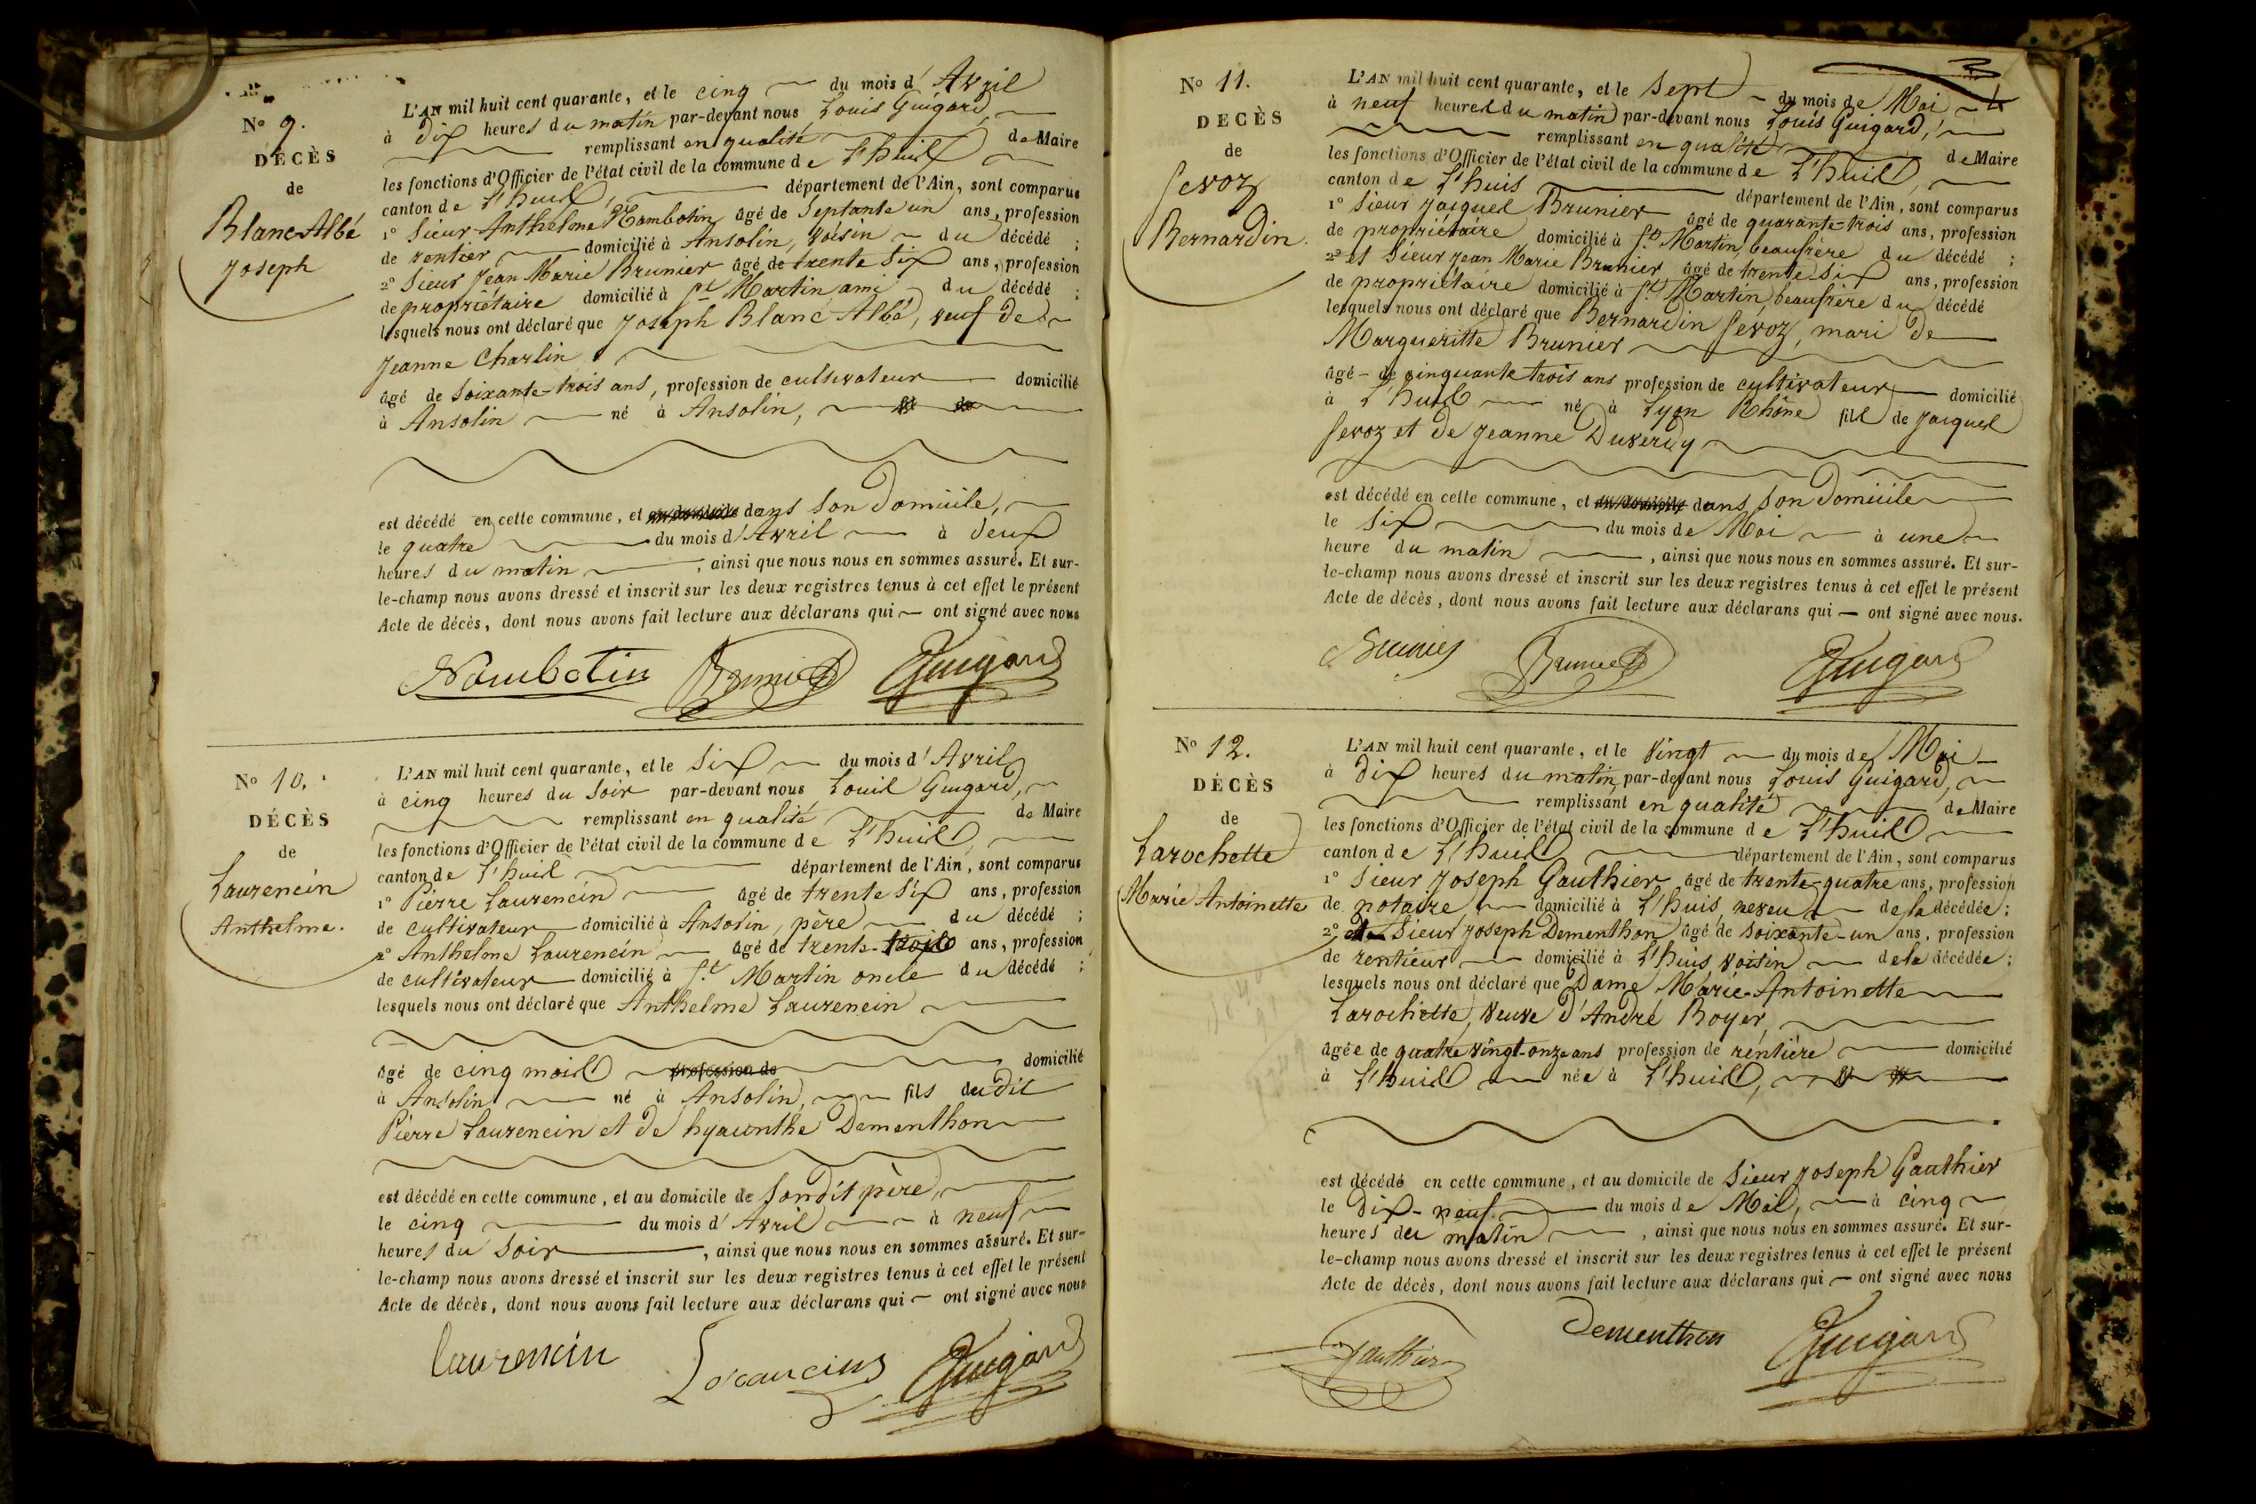 N° 9.
DÉCÈS
de
Blanc Albé
Joseph
L'AN mil huit cent quarante, et le cinq du mois d'Avril
à dix heures du matin par-devant nous Louis Guigard,
remplissant en qualité de Maire
les fonctions d'Officier de l'état civil de la commune de L'huis
canton de L'huis, département de l'Ain, sont comparus
1° Sieur Anthelme Nambotin âgé de Septante un ans, profession
de rentier domicilié à Ansolin, voisin du décédé ;
2° Sieur Jean Marie Brunier âgé de trente six ans, profession
de propriétaire domicilié à St Martin ami du décédé ;
lesquels nous ont déclaré que Joseph Blanc Albé, veuf de
Jeanne Charlin
âgé de soixante-trois ans, profession de cultivateur domicilié
à Ansolin né à Ansolin,
est décédé en cette commune, et dans son domicile,
le quatre du mois d'Avril à deux
heures du matin ; ainsi que nous nous en sommes assuré. Et sur-
le-champ nous avons dressé et inscrit sur les deux registres tenus à cet effet le présent
Acte de décès, dont nous avons fait lecture aux déclarans qui ont signé avec nous
Nambotin Brunier Guigard
N° 10.
DÉCÈS
de
Laurencin
Anthelme.
L'AN mil huit cent quarante, et le six du mois d'Avril
à cinq heures du soir par-devant nous Louis Guigard,
remplissant en qualité de Maire
les fonctions d'Officier de l'état civil de la commune de L'huis,
canton de L'huis département de l'Ain, sont comparus
1° Pierre Laurencin âgé de trente six ans, profession
de cultivateur domicilié à Ansolin, père du décédé ;
2° Anthelme Laurencin âgé de trente-trois ans, profession
de cultivateur domicilié à St Martin oncle du décédé ;
lesquels nous ont déclaré que Anthelme Laurencin
âgé de cinq mois profession de domicilié
à Ansolin né à Ansolin, fils du dit
Pierre Laurencin et de hyacinthe Dementhon
est décédé en cette commune, et au domicile de son dit père,
le cinq du mois d'Avril à neuf
heures du soir, ainsi que nous nous en sommes assuré. Et sur-
le-champ nous avons dressé et inscrit sur les deux registres tenus à cet effet le présent
Acte de décès, dont nous avons fait lecture aux déclarans qui ont signé avec nous
laurencin Guigard
N° 11.
DECÈS
de
Sevoz
Bernardin.
L'AN mil huit cent quarante, et le Sept du mois de Mai
à neuf heures du matin par-devant nous Louis Guigard,
remplissant en qualité de Maire
les fonctions d'Officier de l'état civil de la commune de L'huis,
canton de L'huis département de l'Ain, sont comparus
1° Sieur Jacques Brunier âgé de quarante-trois ans, profession
de propriétaire domicilié à St Martin, beaufrère du décédé ;
2° et Sieur Jean Marie Brunier, âgé de trente-six ans, profession
de propriétaire domicilié à St Martin, beaufrère du décédé
lesquels nous ont déclaré que Bernardin Sevoz, mari de
Margueritte Brunier
âgé de cinquante trois ans profession de cultivateur domicilié
à L'huis né à Lyon Rhône fils de Jacques
Sevoz et de Jeanne Duverdy
est décédé en cette commune, et dans son domicile
le six du mois de Mai à une
heure du matin, ainsi que nous nous en sommes assuré. Et sur-
le-champ nous avons dressé et inscrit sur les deux registres tenus à cet effet le présent
Acte de décès, dont nous avons fait lecture aux déclarans qui — ont signé avec nous.
Brunier Brunier Guigard
N° 12.
DÉCÈS
de
Larochette
Marie Antoinette
L'AN mil huit cent quarante, et le vingt du mois de Mai
à Dix heures du matin, par-devant nous Louis Guigard,
remplissant en qualité de Maire
les fonctions d'Officier de l'état civil de la commune de L'huis
canton de L'huis département de l'Ain, sont comparus
1° Sieur Joseph Gauthier âgé de trente-quatre ans, profession
de notaire domicilié à L'huis, neveu de la décédée ;
2° Sieur Joseph Dementhon âgé de soixante-un ans, profession
de rentieur domicilié à L'huis voisin de la décédée ;
lesquels nous ont déclaré que Dame Marie-Antoinette
Larochette, veuve d'André Royer,
âgée de quatre vingt-onze ans profession de rentière domicilié
à L'huis née à L'huis,
est décédé en cette commune, et au domicile de Sieur Joseph Gauthier
le Dix-neuf du mois de Mai, à cinq
heures du matin, ainsi que nous nous en sommes assuré. Et sur-
le-champ nous avons dressé et inscrit sur les deux registres tenus à cet effet le présent
Acte de décès, dont nous avons fait lecture aux déclarans qui — ont signé avec nous
Gauthier Dementhon Guigard